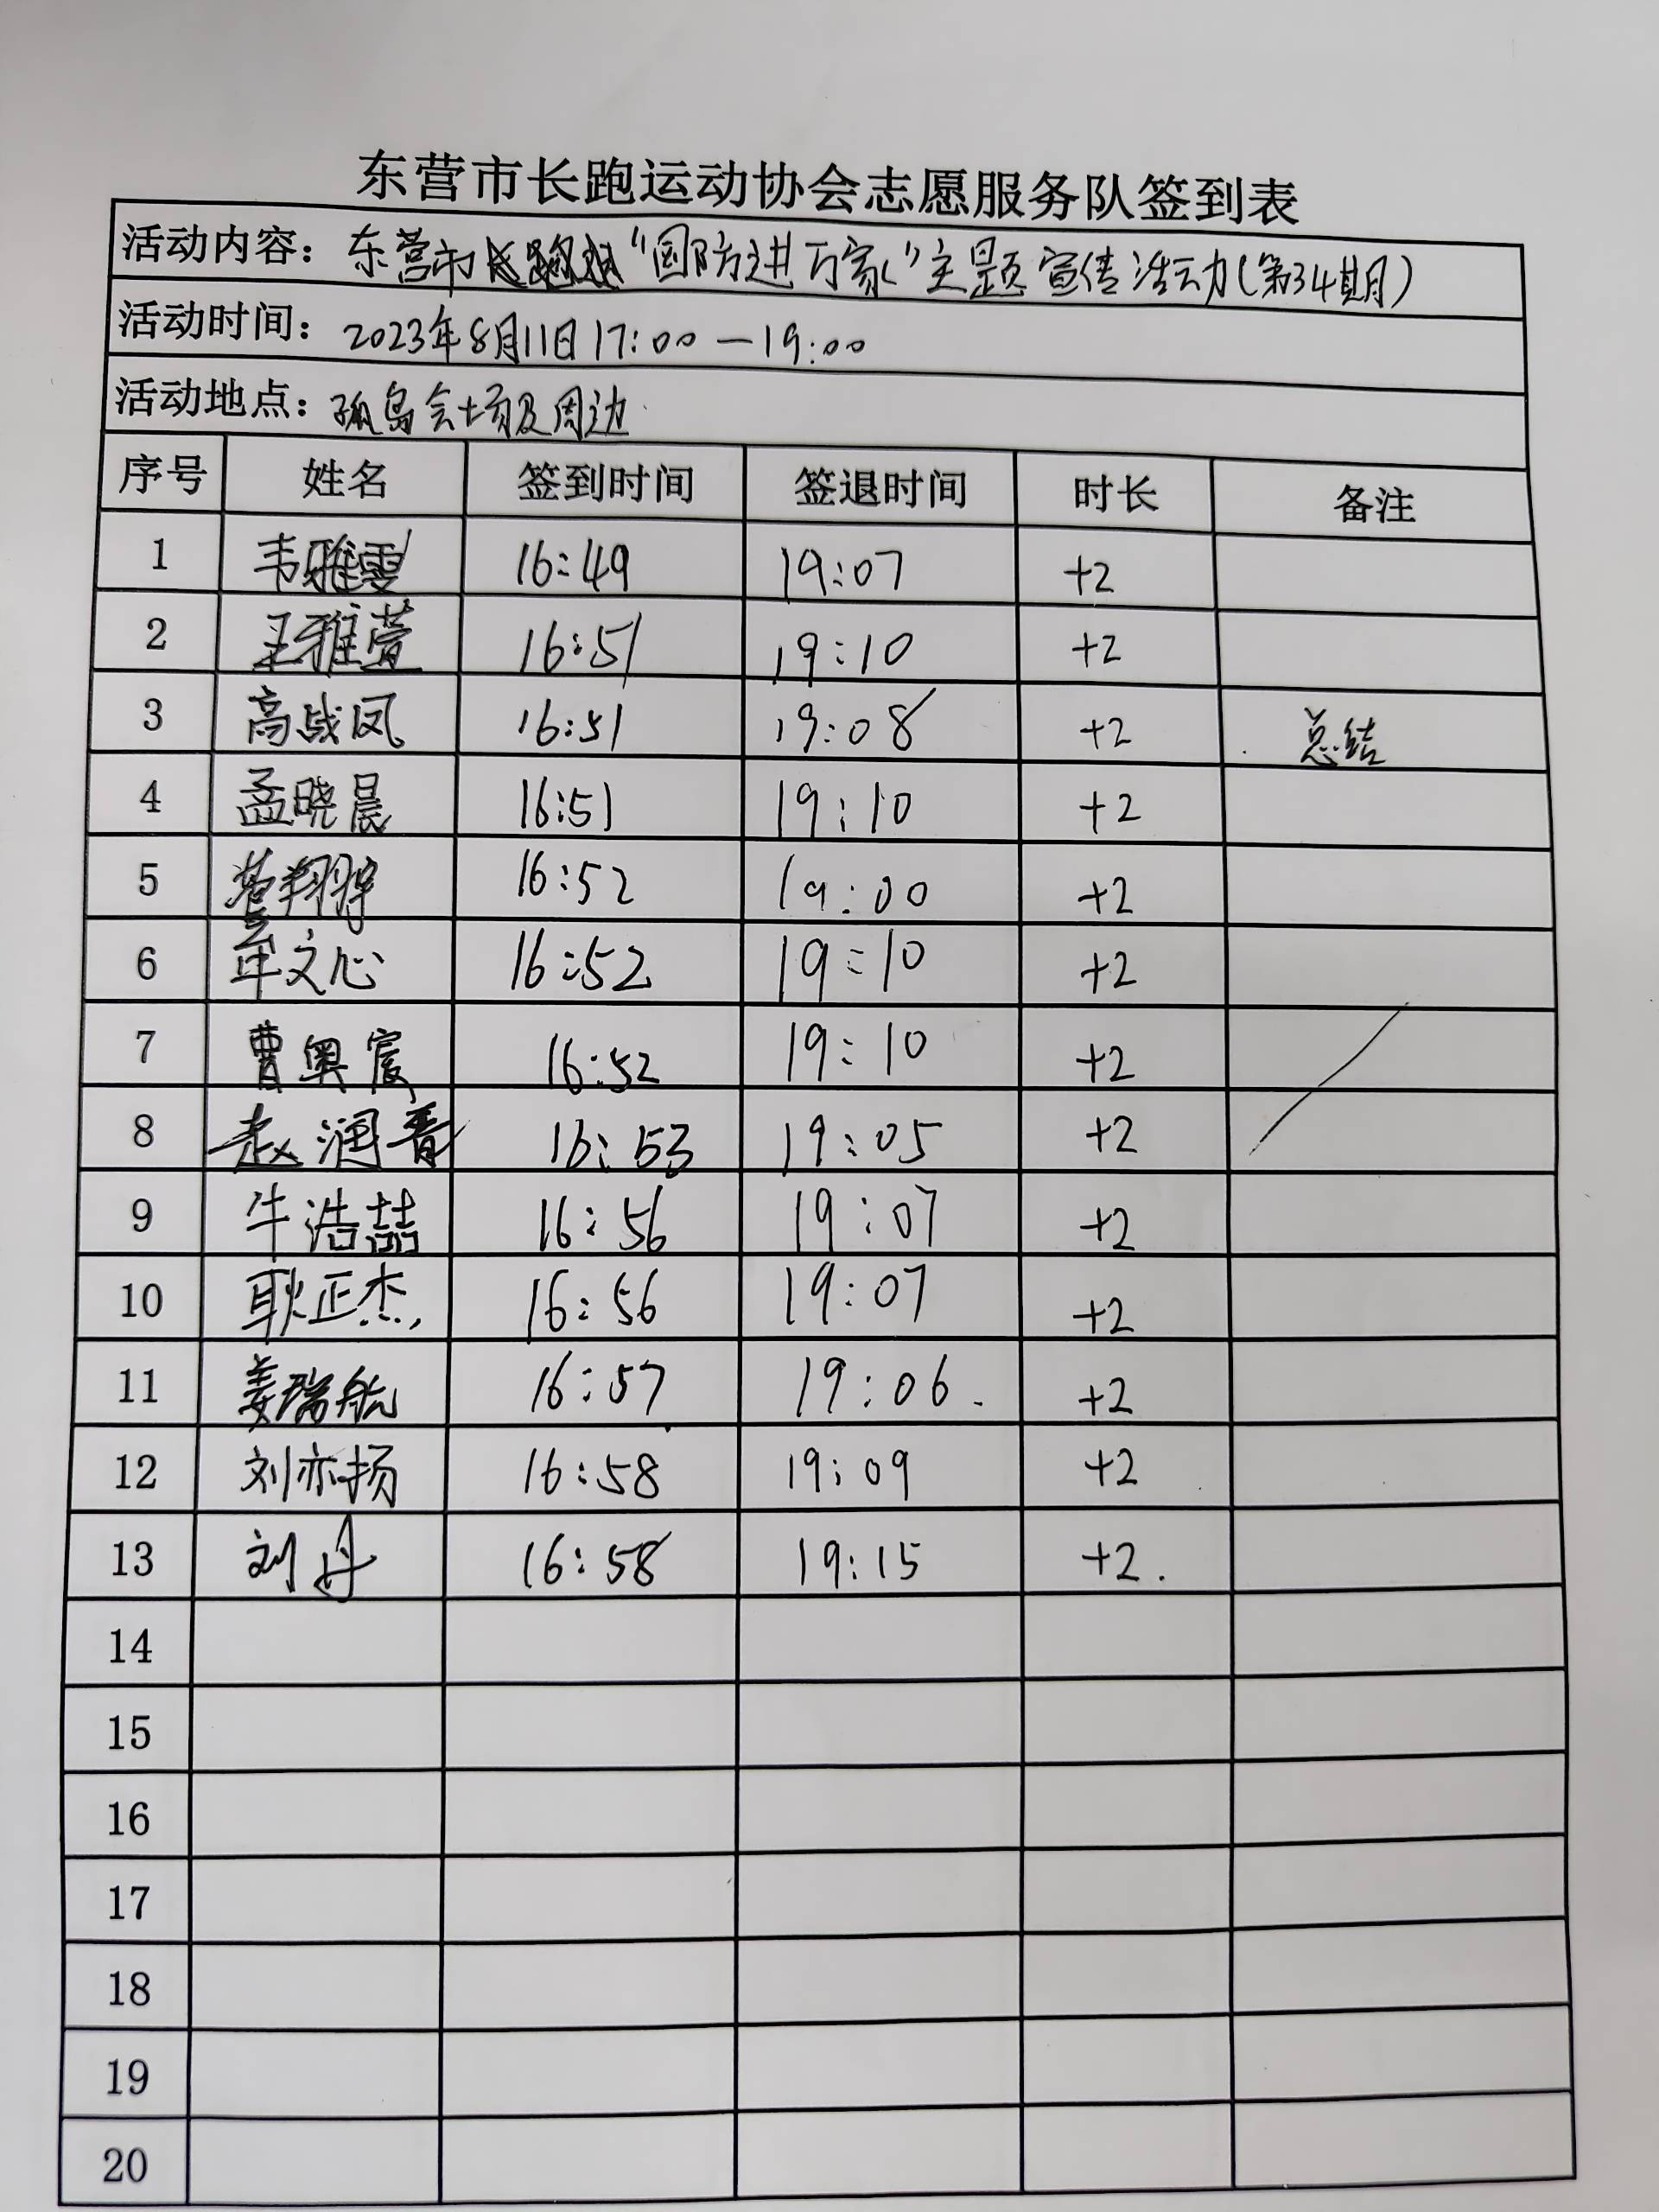 东营市长跑运动协会志愿服务队签到表
活动内容：东营市 "国防进万家"主题宣传活动(第34期)
活动时间：2023年8月11日17:00—19:00
活动地点：孤岛会场及周边
序号 姓名 签到时间 签退时间 时长 备注
1 韦雅雯 16:49 19:07 +2
2 王雅萱 16:51 19:10 +2
3 高战凤 16:51 19:08 +2 总结
4 孟晓晨 16:51 19:10 +2
5 16:52 19:00 +2
6 16:52 19:10 +2
7 曹奥宸 16:52 19:10 +2
8 赵润青 16:53 19:05 +2
9 牛浩喆 16:56 19:07 +2
10 耿正杰 16:56 19:07 +2
11 姜瑞航 16:57 19:06. +2
12 刘亦扬 16:58 19:09 +2
13 刘丹 16:58 19:15 +2.
14
15
16
17
18
19
20